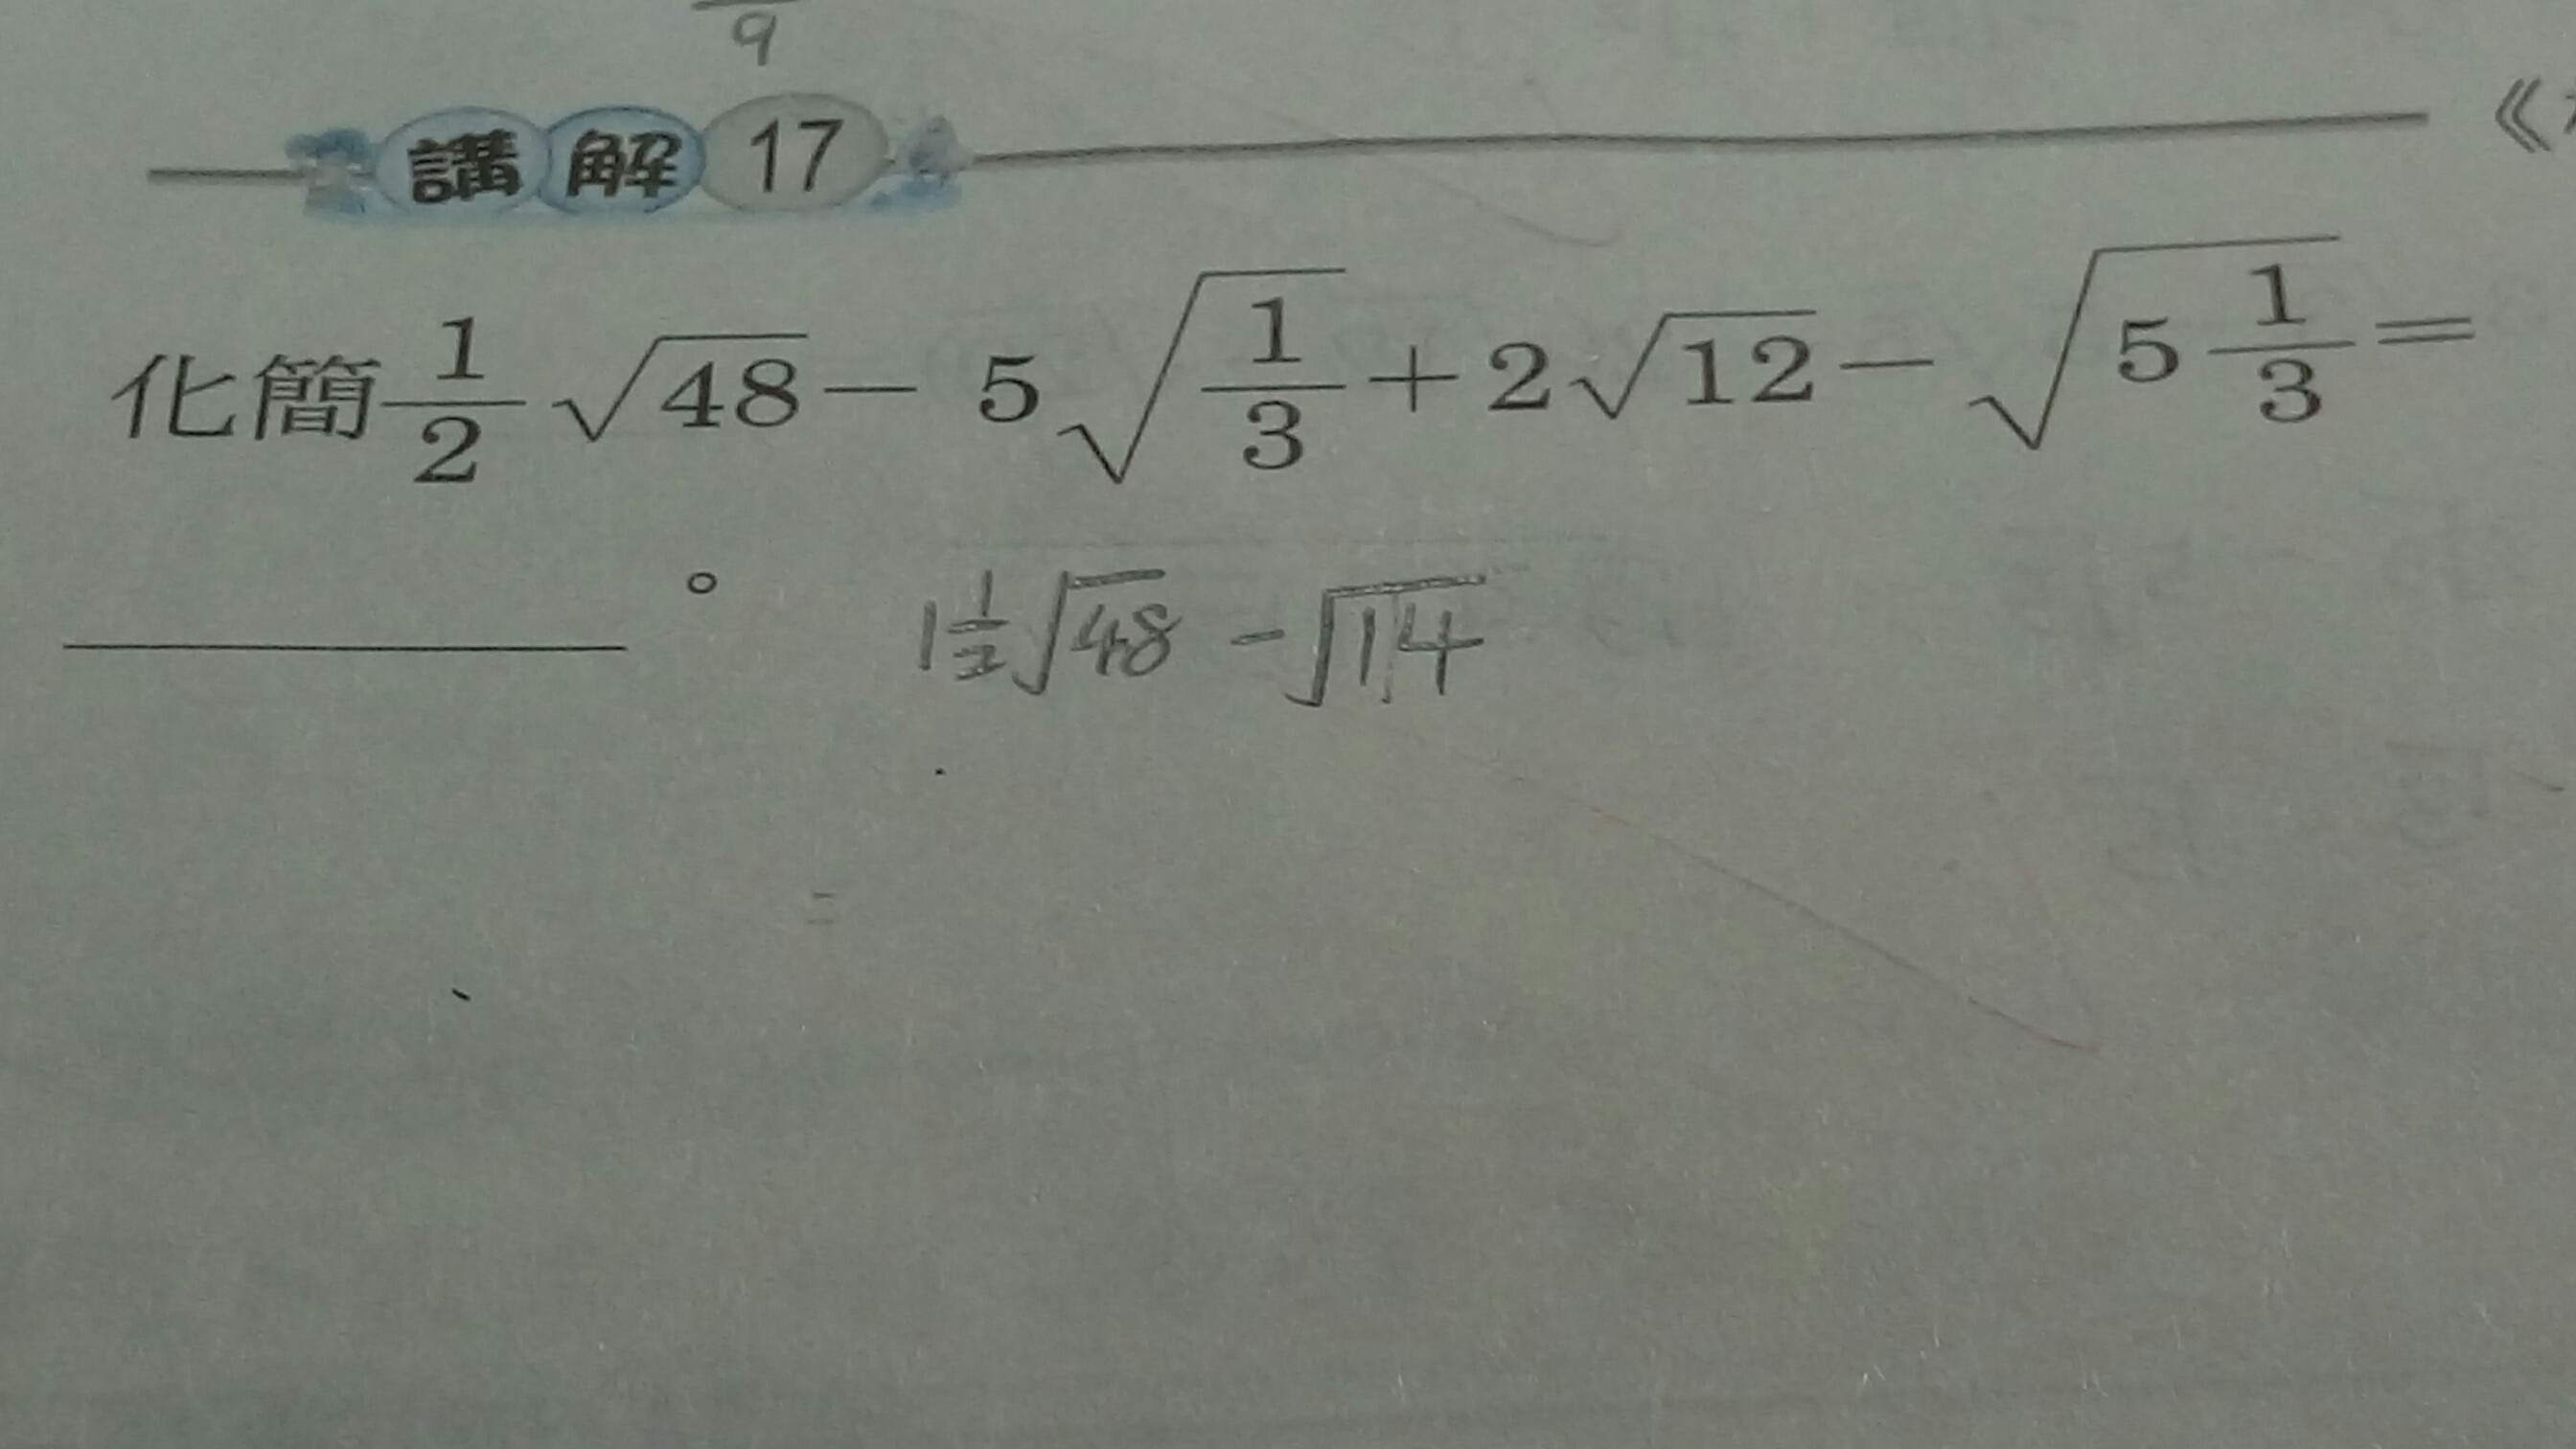 9
講解 17
《
化簡 1/2 √48 − 5√(1/3) + 2√12 − √(5 1/3) =
。
1 1/2 √48 − √14
=